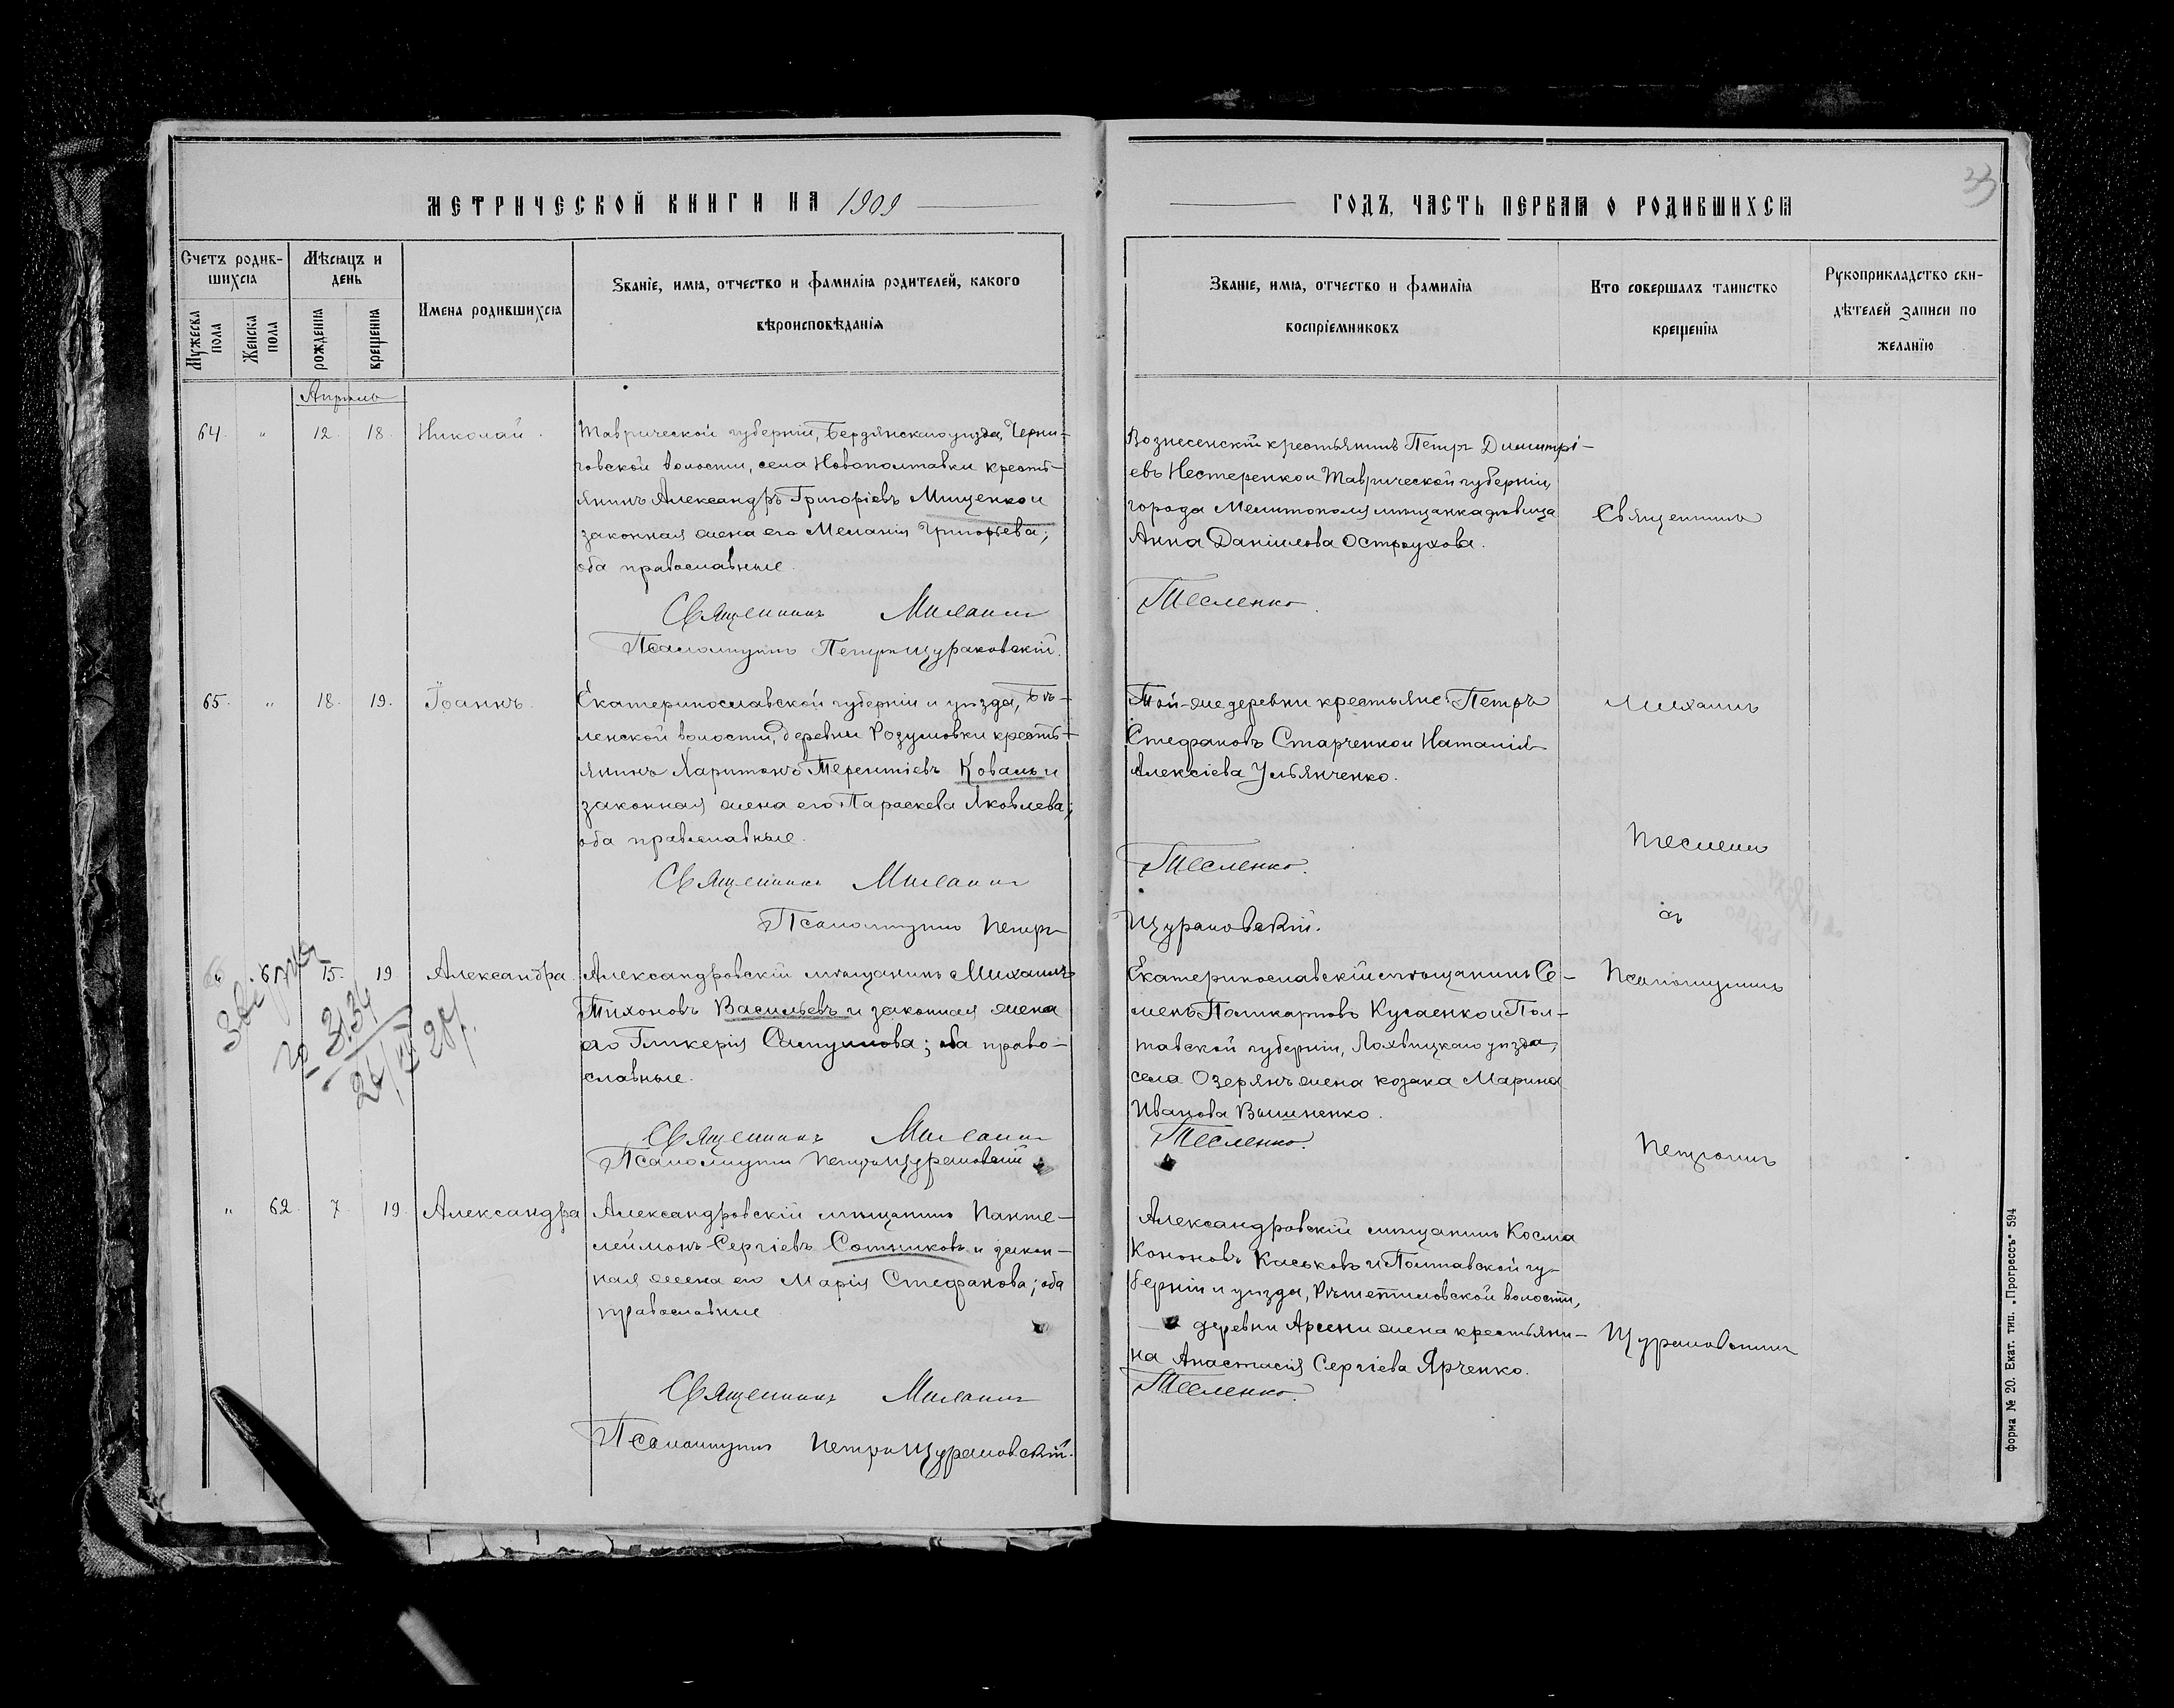 МЕТРИЧЕСКОЙ КНИГИ НА 1909
Счетъ родив-
шихся
Мѣсяцъ и
день
Мужеска пола
Женска пола
рожденія
крещенія
Имена родившихся
Званіе, имя, отчество и фамилія родителей, какого
вѣроисповѣданія
Апрѣль
64. „ 12. 18. Николай.
Таврической губерніи, Бердянскаго уѣзда, Черни-
говской волости, села Новополтавки кресть-
янинъ Александръ Григоріевъ Мищенко и
законная жена его Меланія Григорьева;
оба православные.
Священникъ Михаилъ
Псаломщикъ Петръ Щураковскій.
65. „ 18. 19. Іоаннъ.
Екатеринославской губерніи и уѣзда, Бѣ-
ленской волости, деревни Розумовки кресть-
янинъ Харитонъ Терентіевъ Коваль и
законная жена его Параскева Яковлева;
оба православные.
Священникъ Михаилъ
Псаломщикъ Петръ
61 15. 19 Александра
Александровскій мѣщанинъ Михаилъ
Тихоновъ Васильевъ и законная жена
его Гликерія; оба право-
славные.
Священникъ Михаилъ
Псаломщикъ Петръ Щураковскій
3134
„ 62. 7. 19. Александра
Александровскій мѣщанинъ Панте-
леймонъ Сергіевъ Сотниковъ и закон-
ная жена его Марія Стефанова; оба
православные
Священникъ Михаилъ
Псаломщикъ Петръ Щураковскій.
33
ГОДЪ, ЧАСТЬ ПЕРВАЯ О РОДИВШИХСЯ
Званіе, имя, отчество и фамилія
воспріемниковъ
Кто совершалъ таинство
крещенія
Рукоприкладство сви-
дѣтелей записи по
желанію
Вознесенскій крестьянинъ Петръ Димитрі-
евъ Нестеренко и Таврической губерніи,
города Мелитополя мѣщанка дѣвица
Анна Даніилова Остроухова.
Тесленко.
Той-же деревни крестьяне: Петръ
Стефановъ Старченко и Наталія
Алексіева Ульянченко.
Тесленко.
Щураковскій.
Екатеринославскій мѣщанинъ Се-
менъ Поликарповъ и Пол-
тавской губерніи, Лохвицкаго уѣзда,
села Озерянъ жена козака Марина
Иванова Вишненко.
Тесленко.
Александровскій мѣщанинъ Косма
Кононовъ Каськовъ и Полтавской гу-
берніи и уѣзда, Рѣшетиловской волости,
деревни жена крестьяни-
на Анастасія Сергіева Ярченко.
Тесленко.
Священникъ
Михаилъ
Тесленко
съ
Псаломщикомъ
Петромъ
Щураковскимъ
форма № 20. Екат. тип. „Прогрессъ" 594